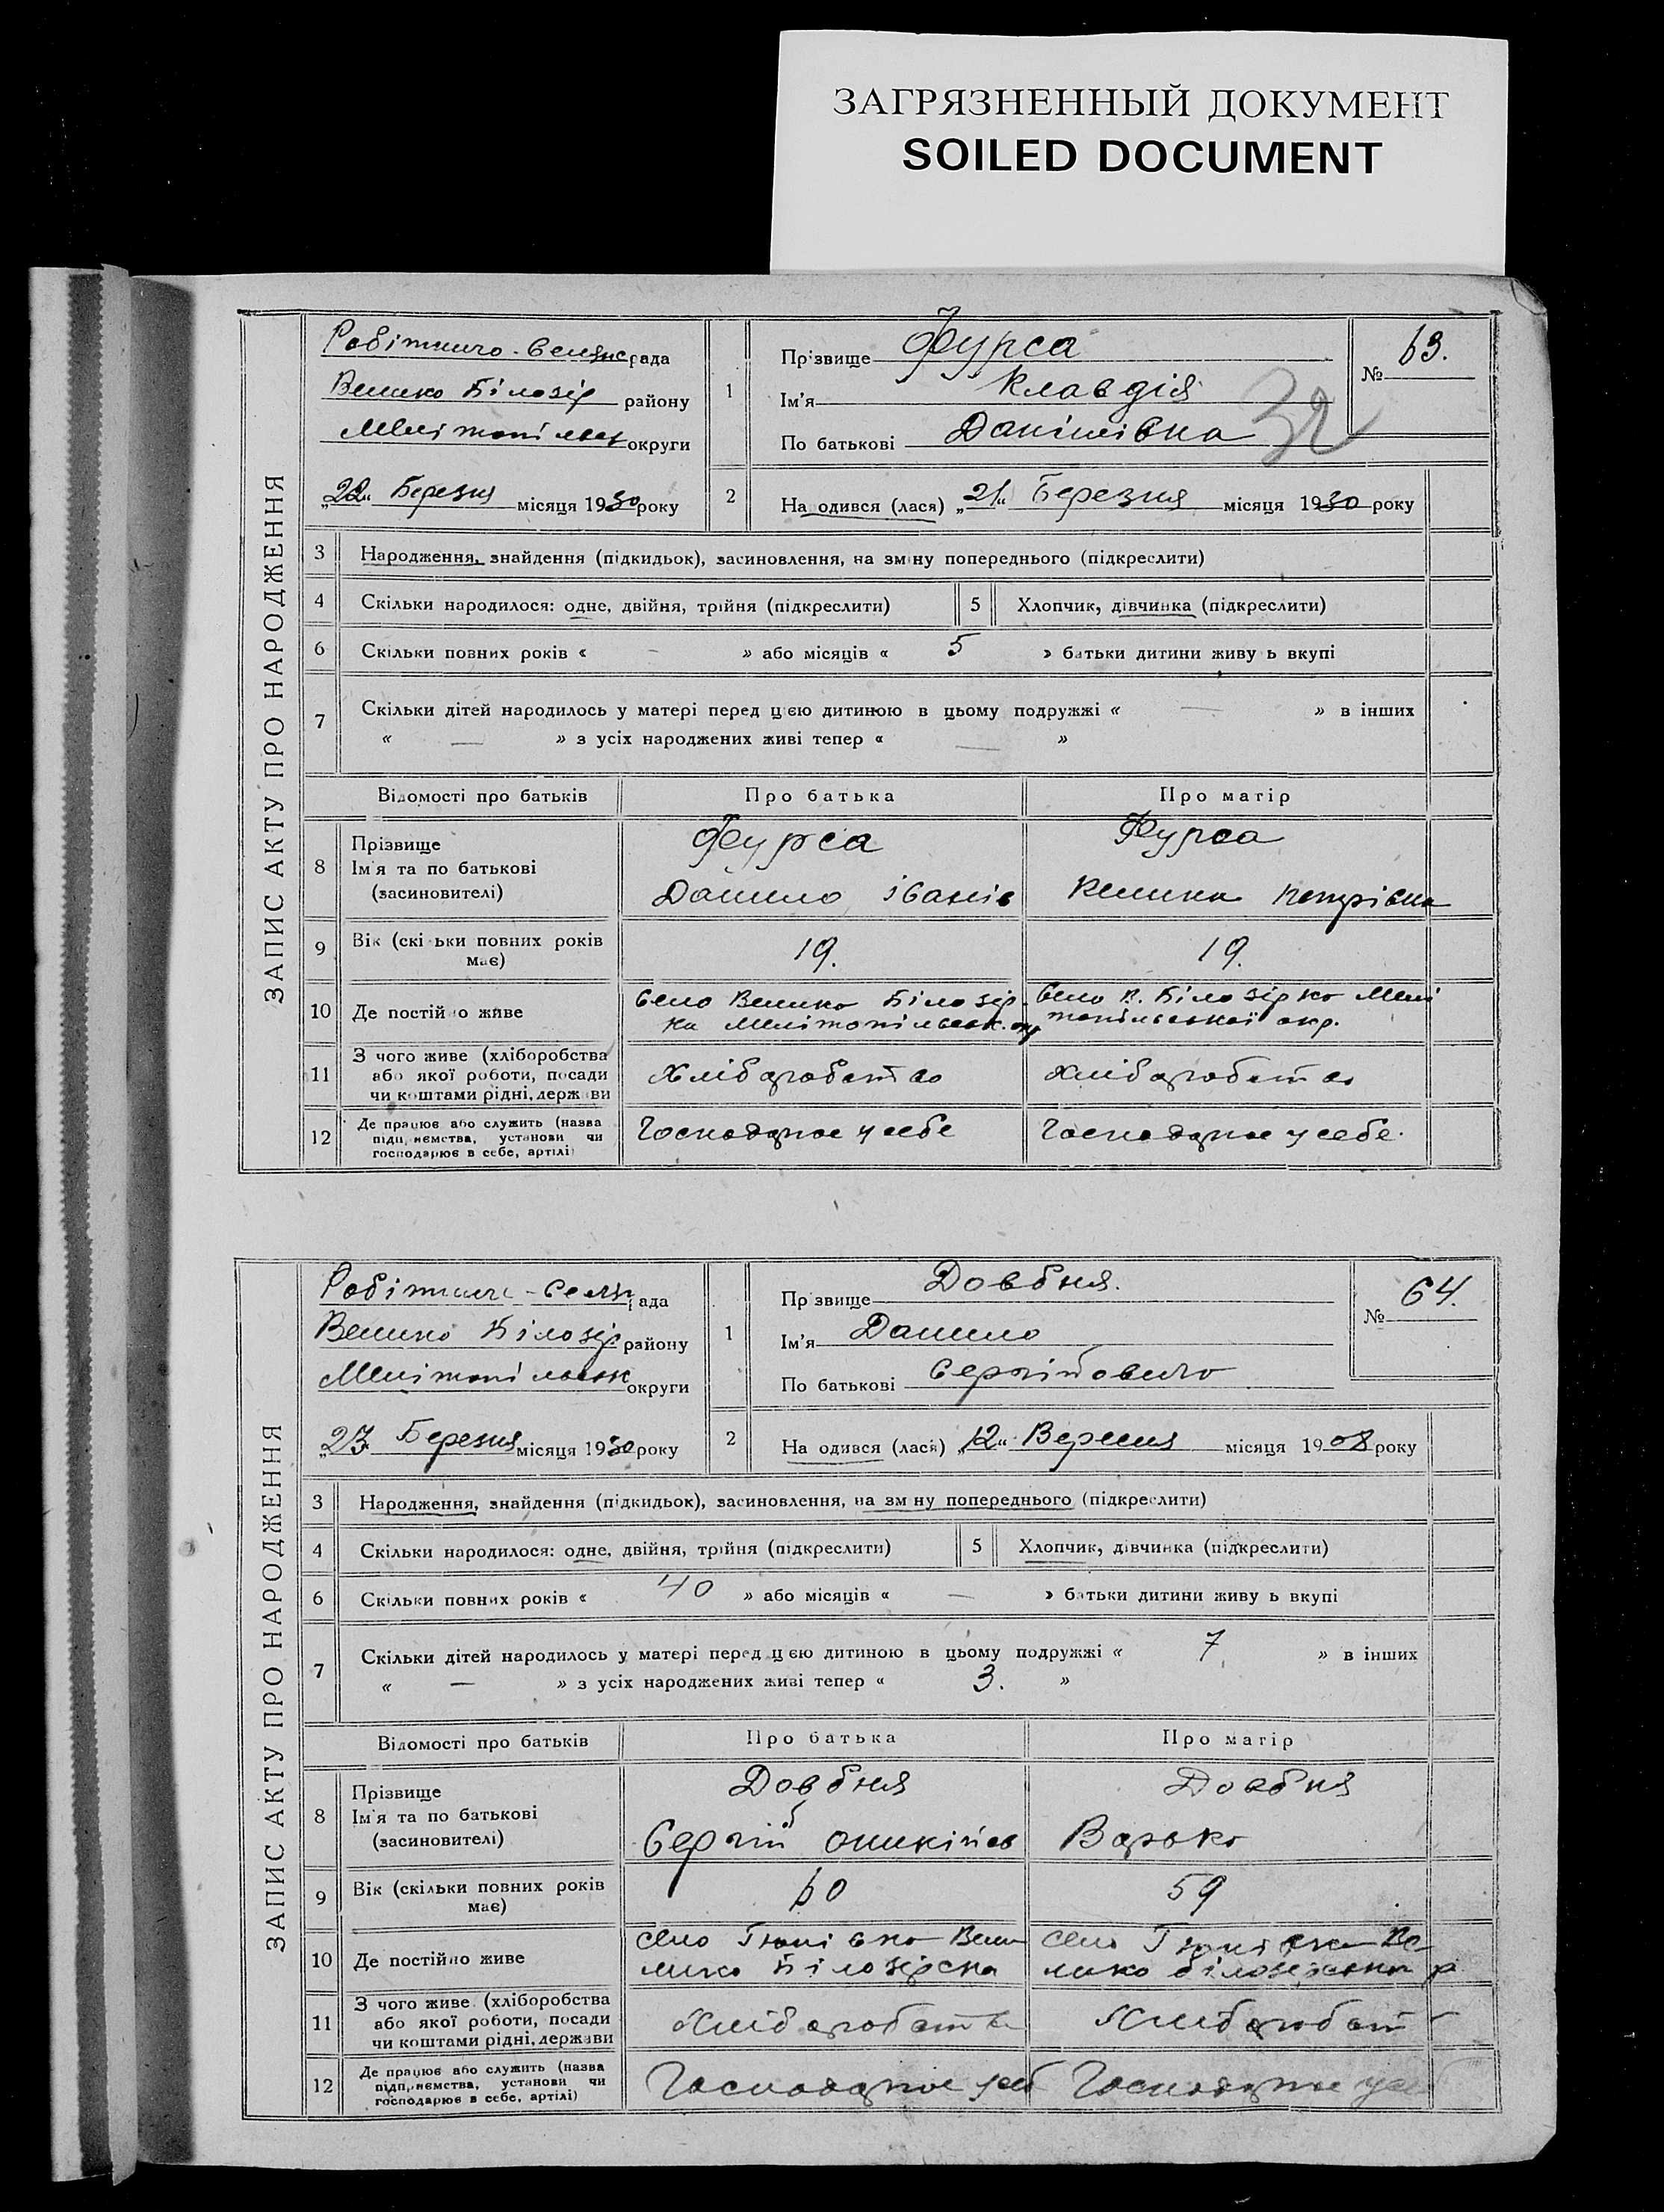 ЗАГРЯЗНЕННЫЙ ДОКУМЕНТ
SOILED DOCUMENT
ЗАПИС АКТУ ПРО НАРОДЖЕННЯ
Робітничо-Селянс рада
Велико Білозір району
Мелітопільськ округи
„22“ Березня місяця 1930 року
1
Прізвище Фурса
Ім'я Клавдія
По батькові Данілівна
32
№ 63.
2
На одився (лася) „21“ Березня місяця 1930 року
3 Народження, знайдення (підкидьок), засиновлення, на зміну попереднього (підкреслити)
4 Скільки народилося: одне, двійня, трійня (підкреслити) 5 Хлопчик, дівчинка (підкреслити)
6 Скільки повних років « – » або місяців « 5 » батьки дитини живу ь вкупі
7 Скільки дітей народилось у матері перед цією дитиною в цьому подружжі « — » в інших
« — » з усіх народжених живі тепер « — »
Відомості про батьків Про батька Про матір
8 Прізвище Ім'я та по батькові (засиновителі)
Фурса Данило Іванів
Фурса Килина Петрівна
9 Вік (скі ьки повних років має) 19. 19.
10 Де постійно живе
Село Велико Білозір-
ка Мелітопільськ. окр
Село В. Білозірка Мелі
топільської окр.
11 З чого живе (хліборобства
або якої роботи, посади
чи коштами рідні, держ ви
Хліборобство Хліборобство
12 Де працює або служить (назва
підп, иємства, установи чи
господарює в себе, артілі)
Господарює у себе Господарює у себе.
ЗАПИС АКТУ ПРО НАРОДЖЕННЯ
Робітничо-Селян рада
Велико Білозір району
Мелітопільськ округи
„23 Березня місяця 1930 року
1
Пр звище Довбня.
Ім'я Данило
По батькові Сергійович
№ 64.
2
На одився (лася) „12“ Вересня місяця 1908 року
3 Народження, знайдення (підкидьок), засиновлення, на зм ну попереднього (підкреслити)
4 Скільки народилося: одне, двійня, трійня (підкреслити) 5 Хлопчик, дівчинка (підкреслити)
6 Скільки повних років « 40 » або місяців « — » батьки дитини живу ь вкупі
7 Скільки дітей народилось у матері перед цією дитиною в цьому подружжі « 7 » в інших
« — » з усіх народжених живі тепер « 3. »
Відомості про батьків Про батька Про матір
8 Прізвище Ім'я та по батькові (засиновителі)
Довбня Сергій Оникіїв
Довбня Варька
9 Вік (скільки повних років має) 60 59
10 Де постійно живе
село Гюнівка
Білозірська
село Гюнівка Ве-
лико білозірськ р
11 З чого живе (хліборобства
або якої роботи, посади
чи коштами рідні, держави
Хліборобств Хліборобст
12 Де працює або служить (назва
підприємства, установи чи
господарює в себе, артілі)
Господарює у себ Господарює у себ